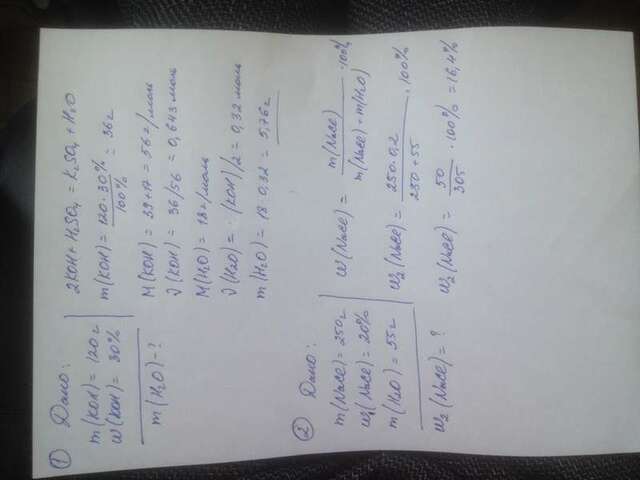 ① Дано:
m(KOH) = 120г
ω(KOH) = 30%
m(H₂O) - ?
2KOH + H₂SO₄ = K₂SO₄ + H₂O
m(KOH) = 120·30% / 100% = 36г
M(KOH) = 39+17 = 56г/моль
ν(KOH) = 36/56 = 0,643 моль
M(H₂O) = 18г/моль
ν(H₂O) = ν(KOH)/2 = 0,32 моль
m(H₂O) = 18·0,32 = 5,76г
② Дано:
m(NaCl) = 250г
ω₁(NaCl) = 20%
m(H₂O) = 55г
ω₂(NaCl) = ?
ω(NaCl) = m(NaCl) / m(NaCl) + m(H₂O) · 100%
ω₂(NaCl) = 250·0,2 / 250+55 · 100%
ω₂(NaCl) = 50 / 305 · 100% = 16,4%